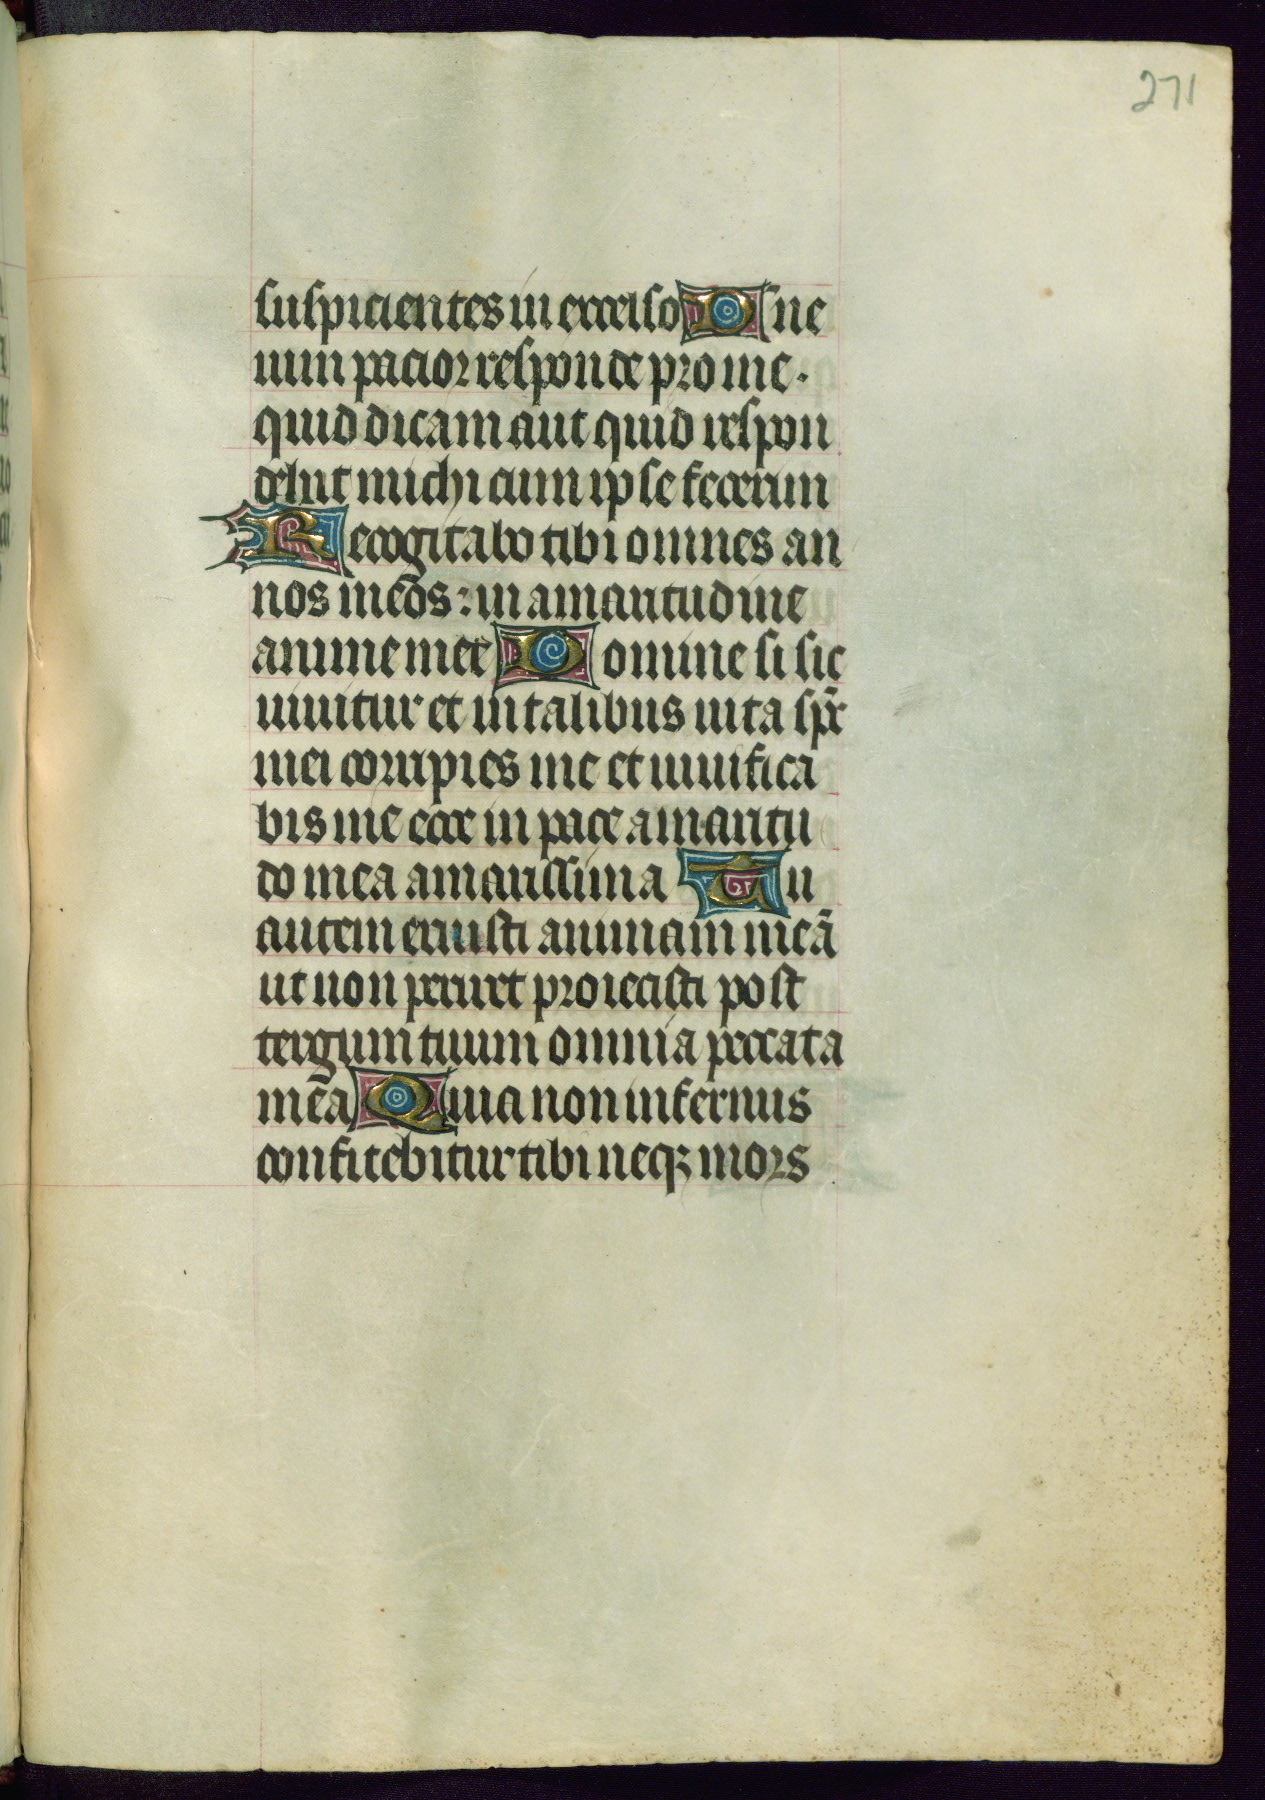 271
suspicientes in excelso Dne
uim pacior responde pro me.
quid dicam aut quid respon
debit michi cum ipse fecerim
Recogitabo tibi omnes an
nos meos: in amaritudine
anime mee Domine si sic
uiuitur et in talibus uita spc
mei corripies me et uiuifica
bis me ecce in pace amaritu
do mea amarissima Tu
autem eruisti animam meā
ut non periret proiecisti post
tergum tuum omnia peccata
mea Quia non infernus
confitebitur tibi neqz mors